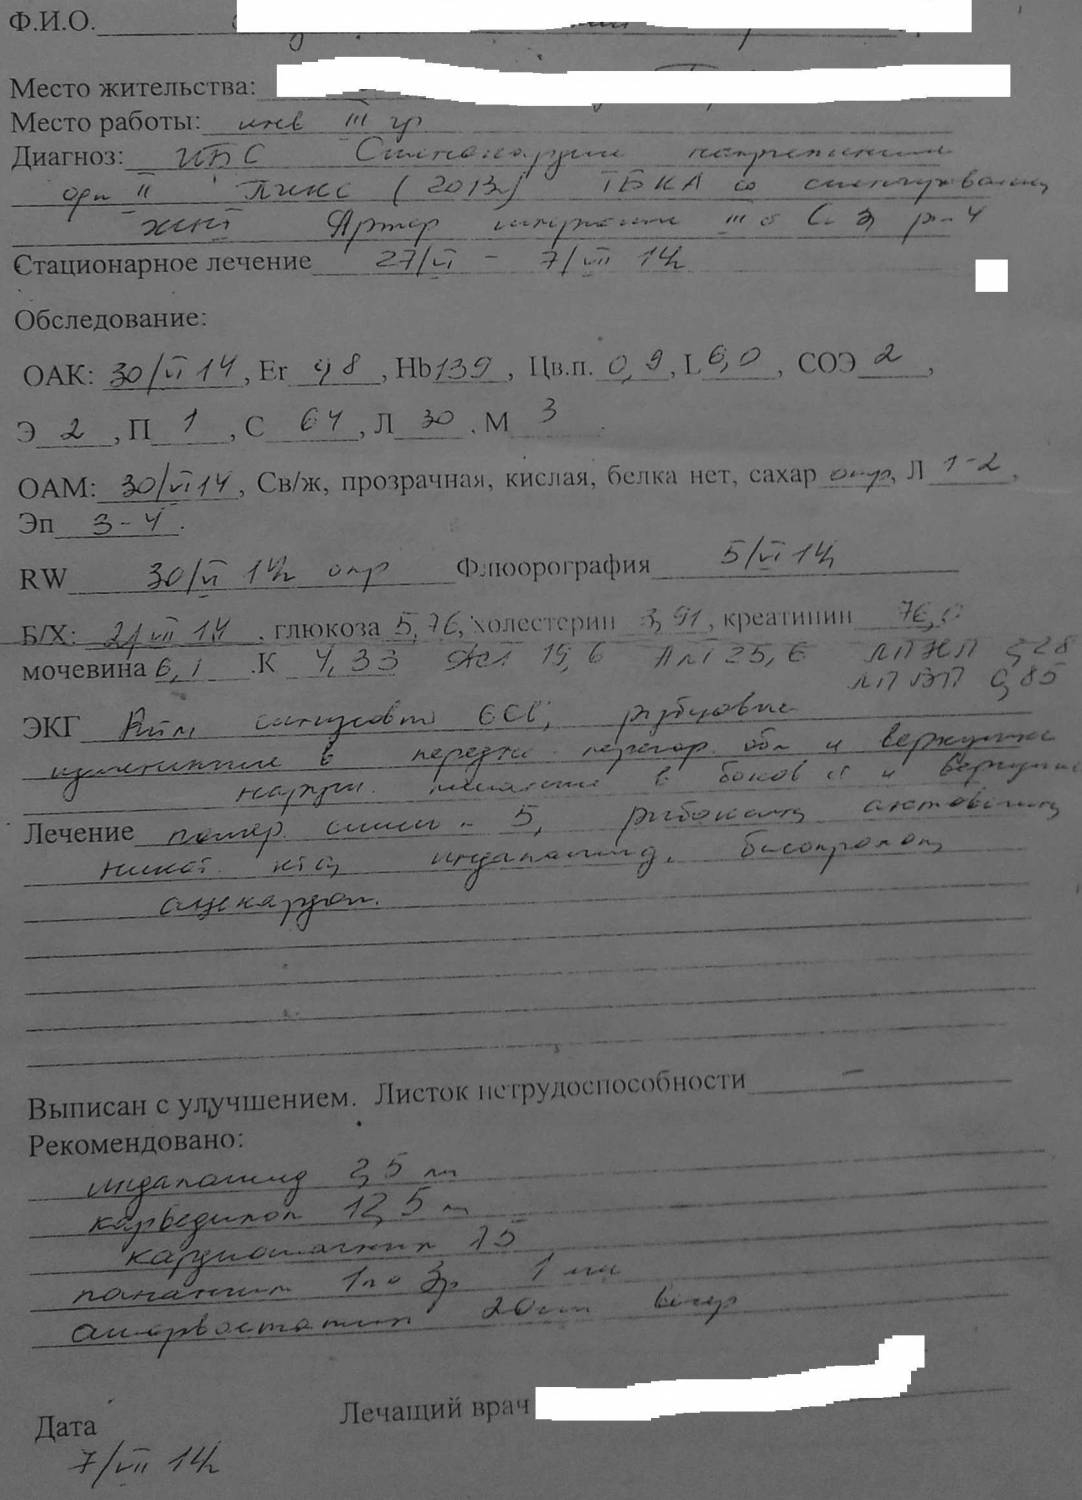 Ф.И.О.
Место жительства:
Место работы: инв III гр
Диагноз: ИБС Стенокардия напряжения
II ПИКС (2013г) ТБКА со стентированием
Артер гипертензия III р-4
Стационарное лечение 27/VI - 7/VII 14г
Обследование:
ОАК: 30/VI 14, Er 4,8, Hb 139, Цв.п. 0,9, L 6,0, СОЭ 2,
Э 2, П 1, С 64, Л 30. М 3
ОАМ: 30/VI 14, Св/ж, прозрачная, кислая, белка нет, сахар отр, Л 1-2,
Эп 3-4.
RW 30/VI 14г отр Флюорография 5/VI 14г
Б/Х: VII 14, глюкоза 5,76, холестерин 3,91, креатинин 76,0
мочевина 6,1 .К 4,33 19,6 АлТ 25,6 ЛПНП 2,28
ЛПВП 0,85
ЭКГ Ритм синусовый 66', рубцовые
изменения в передне перегор. обл и верхушке
наруш. питания в боков и верхушке
Лечение поляр. смесь - 5, рибоксин, актовегин,
никот. к-та, индапамид, бисопролол,
ацекардол.
Выписан с улучшением. Листок нетрудоспособности -
Рекомендовано:
индапамид 2,5 мг
карведилол 12,5 мг
кардиомагнил 75
панангин 1т 3р 1 мес
аторвастатин 20мг вечер
Лечащий врач
Дата
7/VII 14г